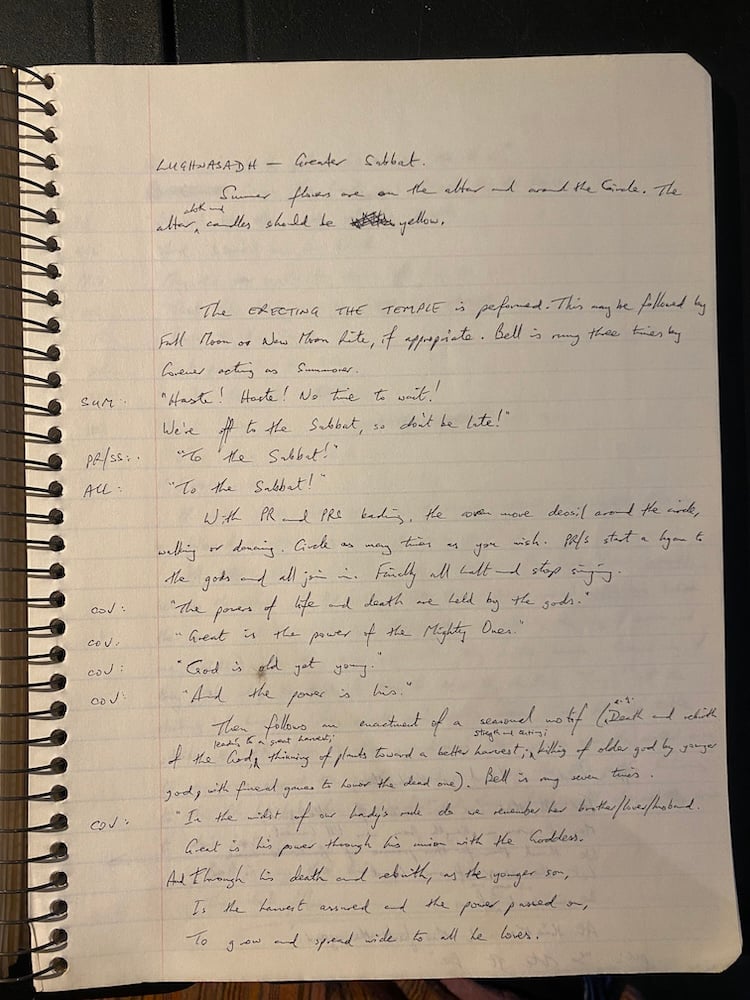 LUGHNASADH — Greater Sabbat.
Summer flowers are on the altar and around the Circle. The
cloth and
altar, candles should be yellow.
The ERECTING THE TEMPLE is performed. This may be followed by
Full Moon or New Moon Rite, if appropriate. Bell is rung three times by
Covener acting as Summoner.
SUM: "Haste! Haste! No time to wait!
We're off to the Sabbat, so don't be late!"
PR/SS: "To the Sabbat!"
ALL: "To the Sabbat!"
With PR and PRS leading, the coven move deosil around the circle,
walking or dancing. Circle as many times as you wish. PR/S start a hymn to
the gods and all join in. Finally all halt and stop singing.
COV: "The powers of life and death are held by the gods."
COV: "Great is the power of the Mighty Ones."
COV: "God is old yet young."
COV: "And the power is his."
e.g.
Then follows an enactment of a seasonal motif (Death and rebirth
leading to a great harvest; strength and testing;
of the God, thinning of plants toward a better harvest; killing of older god by younger
god, with funeral games to honor the dead one). Bell is rung seven times.
COV: "In the midst of our Lady's rule do we remember her brother/lover/husband.
Great is his power through his union with the Goddess.
And Through his death and rebirth, as the younger son,
Is the harvest assured and the power passed on,
To grow and spread wide to all he loves.